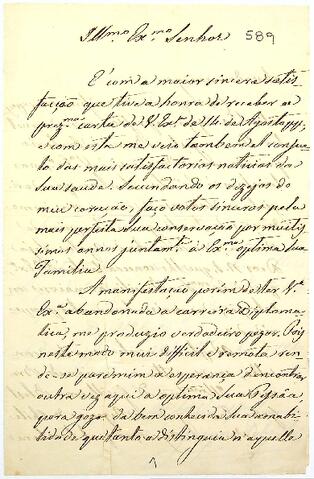 Illmo Exmo Senhor
589
É com a maior sincera satis-
fação que tive a honra de receber a
prezma carta de V. Exa de 14 de Agosto pp.
e com esta me veio tambem o conjun-
to das mais satisfactorias noticias da
sua saude. Secundando os dezejos do
meu coração, faço votos sinceros pela
mais perfeita sua conservação por muitis-
simos annos juntamte á Exma optima sua
Familia.
A manifestação porém de ter Va
Exa abandonado a carreira Diploma-
tica, me produzio verdadeiro pezar. Pois
neste modo mais difficil e remota ren-
de-se para mim a esperança d'encontrar
outra vez aqui a optima Sua Pessôa
para gozar da bem conhecida Sua amabi-
lidade que tanto a distinguia n'aquelle